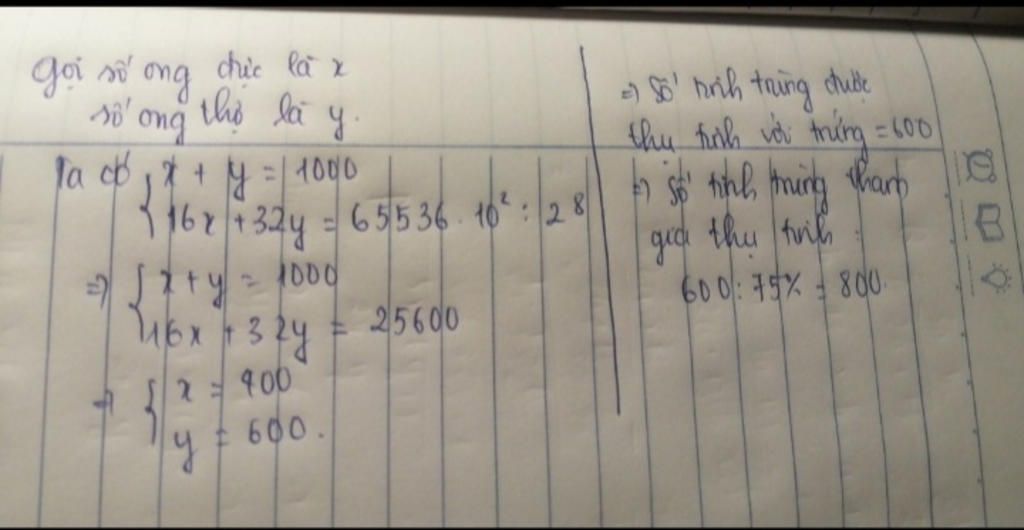 Gọi số ong đực là x
số ong thợ là y.
Ta có { x + y = 1000
16x + 32y = 65536 . 10² : 2⁸
=> { x + y = 1000
16x + 32y = 25600
=> { x = 400
y = 600.
=> Số tinh trùng được
thụ tinh với trứng = 600
=> Số tinh trùng tham
gia thụ tinh :
600 : 75% = 800.